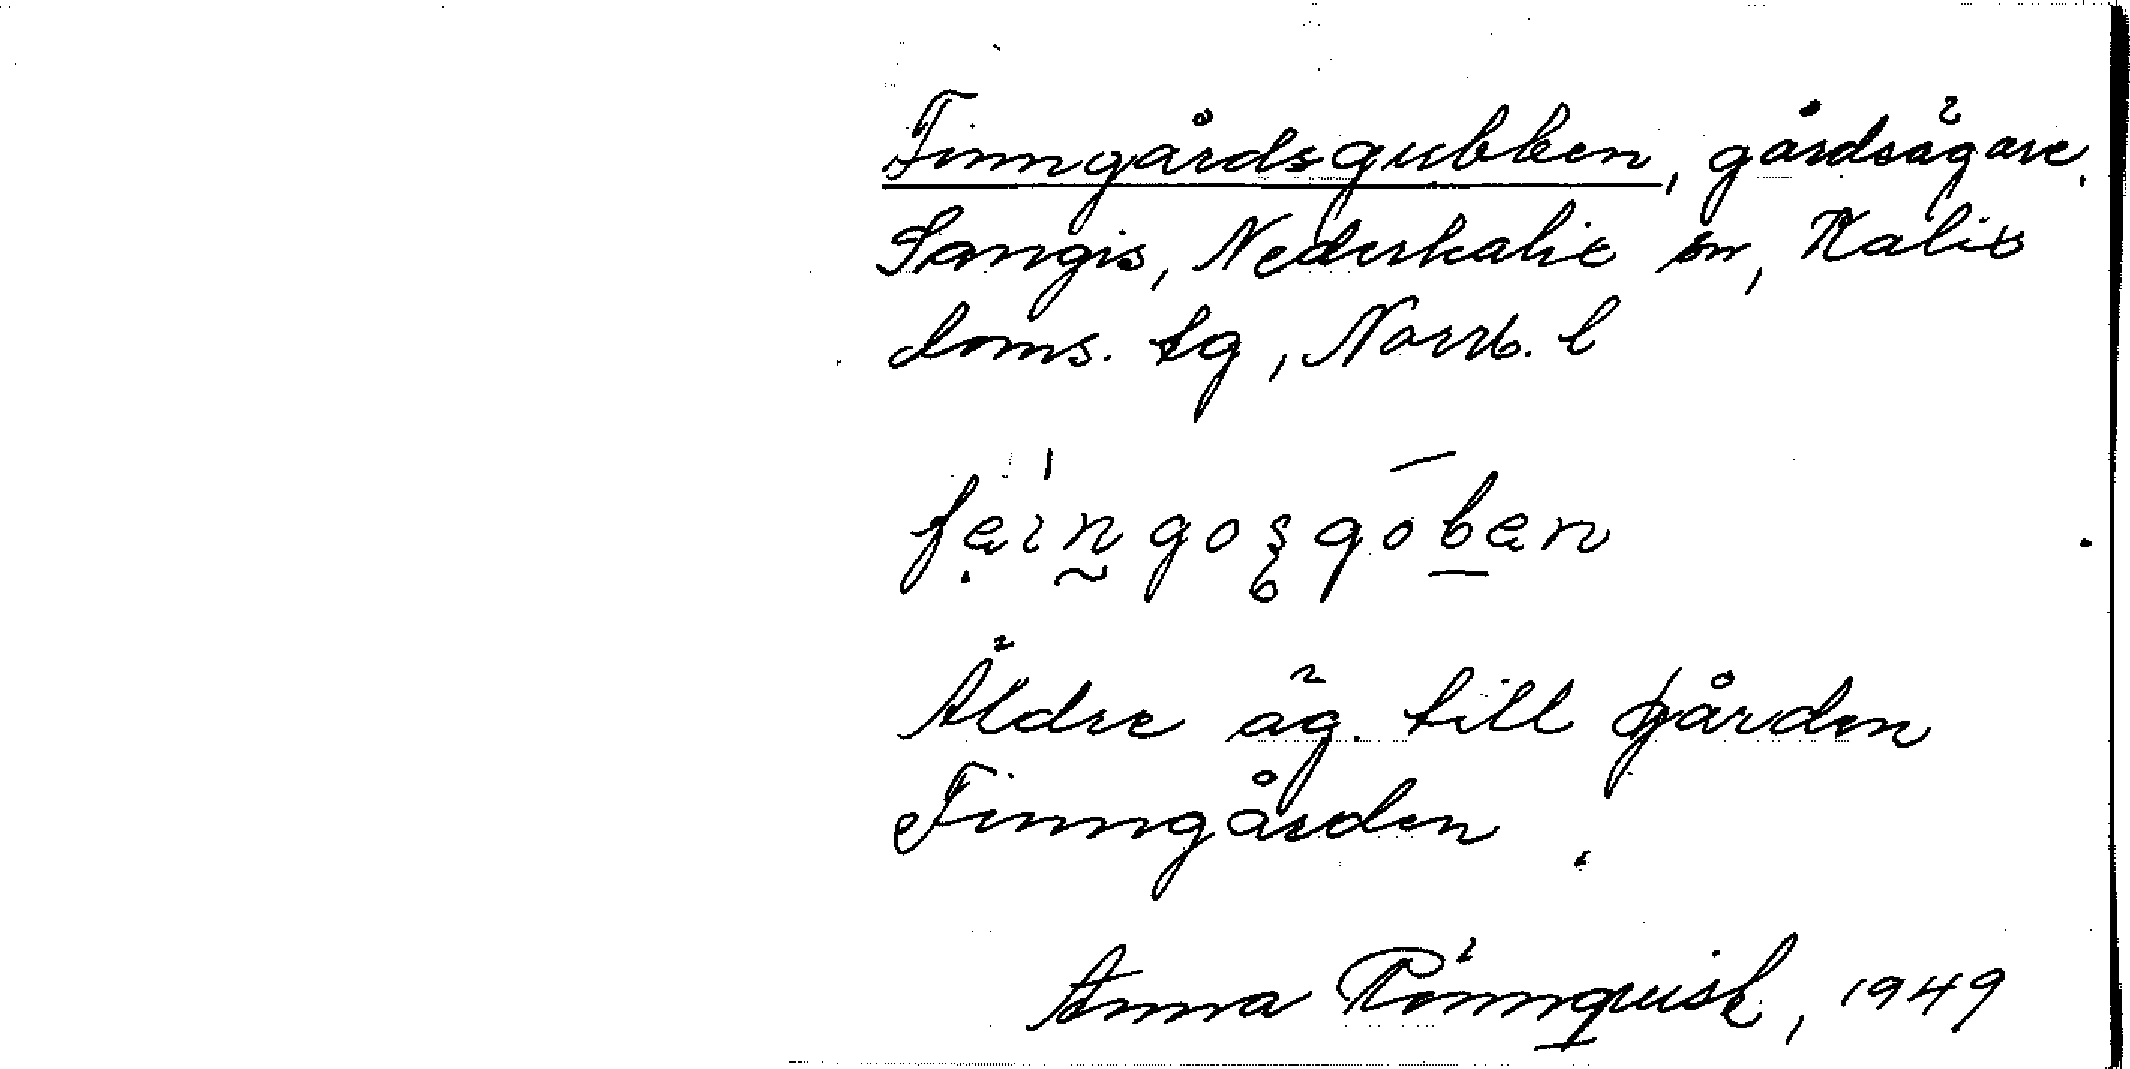 Finngårdsgubben, gårdsägare,
Sangis, Nederkalix sn, Kalix
doms. tg, Norrb. l
Äldre äg. till gården
Finngården.
Anna Rönnquist, 1949